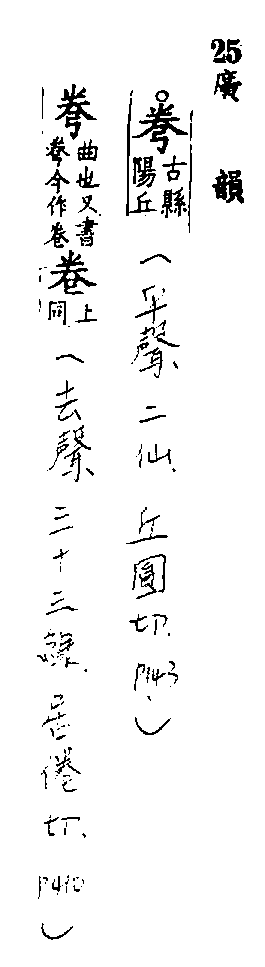 25廣韻
○弮古縣陽丘（平聲、二仙、丘圓切、P143、）
弮曲也又書弮今作卷卷上同（去聲、三十三線、居倦切、P410）